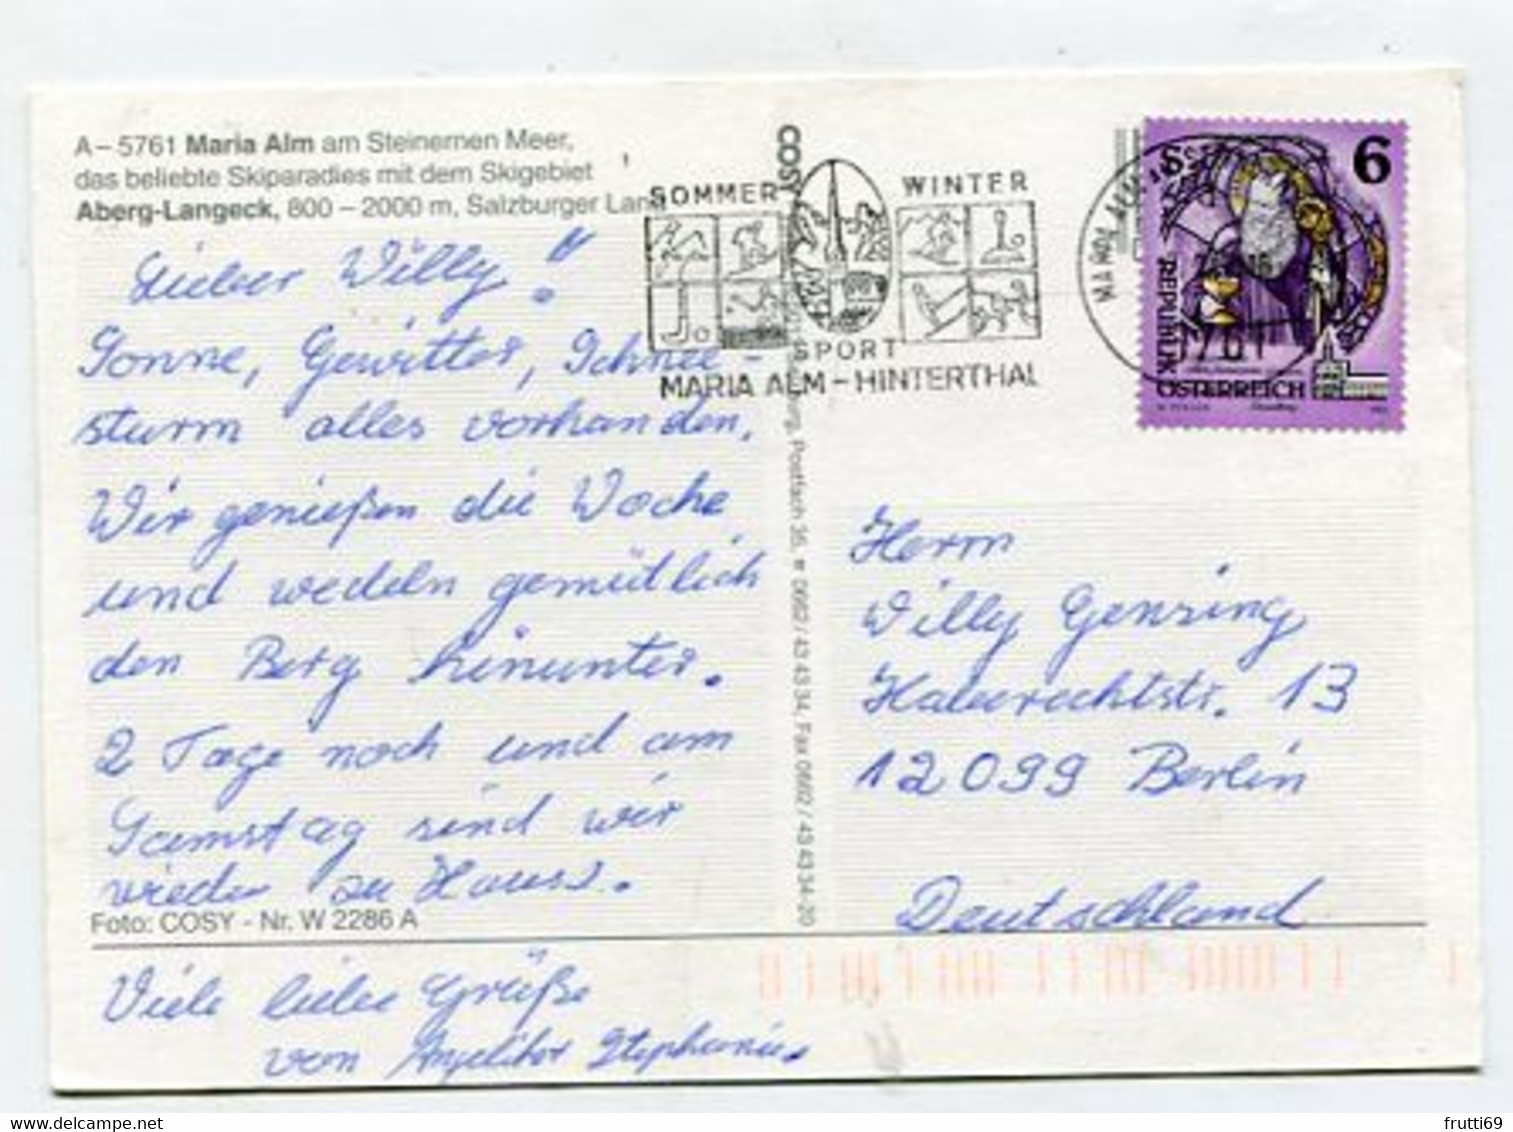 A-5761 Maria Alm am Steinernen Meer,
das beliebte Skiparadies mit dem Skigebiet
Aberg-Langeck, 800-2000 m, Salzburger Land
Lieber Willy!
Sonne, Gewitter, Schnee-
sturm alles vorhanden.
Wir genießen die Woche
und wedeln gemütlich
den Berg hinunter.
2 Tage noch und am
Samstag sind wir
wieder zu Hause.
Foto: COSY - Nr. W 2286 A
Viele liebe Grüße
von Stephanie
COSY
Postfach 36, 0662/43 43 34, Fax 0662/43 43 34-20
SOMMER WINTER
SPORT
MARIA ALM-HINTERTHAL
6 6
REPUBLIK
ÖSTERREICH
Herrn
Willy Gensing
12099 Berlin
Deutschland
frutti69